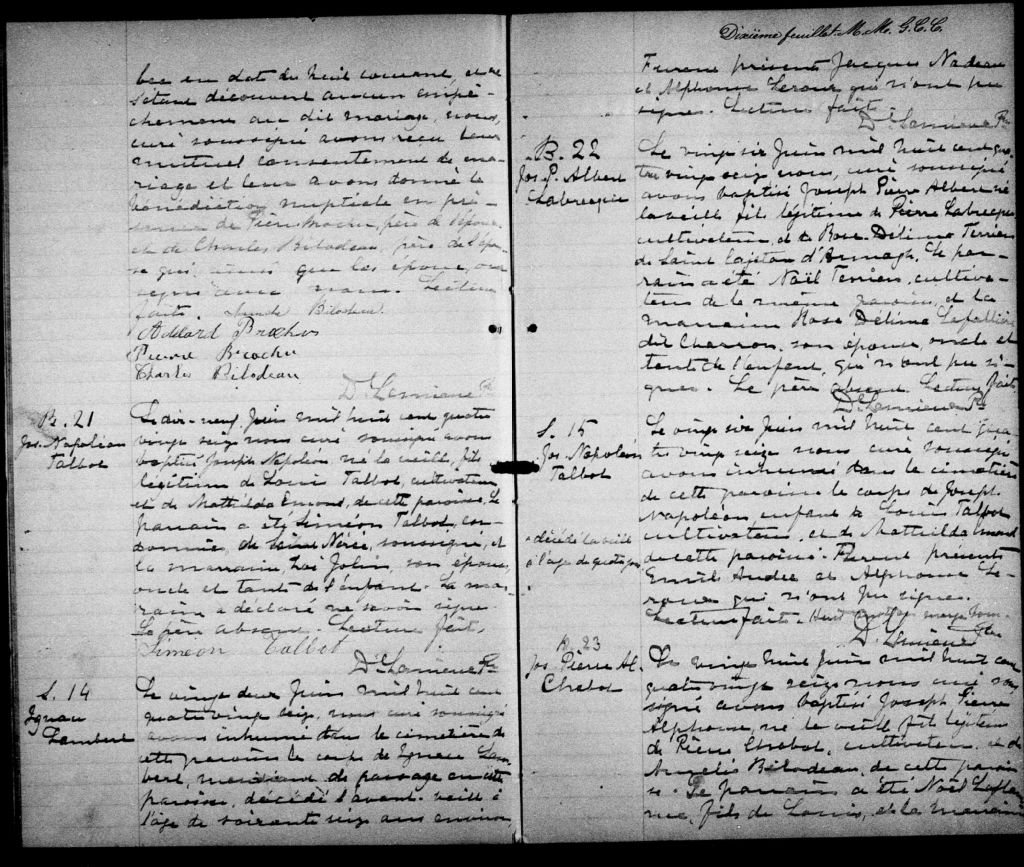 bec en date du huit courant, et ne
s'étant découvert aucun empê-
chement au dit mariage, nous,
curé soussigné avons reçu leur
mutuel consentement de ma-
riage et leur avons donné la
bénédiction nuptiale en pré-
sence de Pierre Brochu, père de l'époux
et de Charles Bilodeau, père de l'épou-
se qui, ainsi que les époux, ont
signé avec nous. Lecture
faite. Bilodeau
Adélard Brochu
Pierre Brochu
Charles Bilodeau
D. Lemieux Ptre
B. 21
Jos. Napoléon
Talbot
Le dix-neuf Juin mil huit cent quatre
vingt seize nous curé soussigné avons
baptisé Joseph Napoléon né la veille, fils
légitime de Louis Talbot, cultivateur
et de Mathilda Emond, de cette paroisse. Le
parrain a été Siméon Talbot, cor-
donnier, de Saint Nérée, soussigné, et
la marraine, Jolin, son épouse,
oncle et tante de l'enfant. La mar-
raine a déclaré ne savoir signer.
Le père absent. Lecture faite.
Simeon Talbot
D. Lemieux Ptre
S. 14
Ignace
Lambert
Le vingt deux Juin mil huit cent
quatre vingt seize, nous curé soussigné
avons inhumé dans le cimetière de
cette paroisse le corps de Ignace Lam-
bert, mendiant de passage en cette
paroisse, décédé l'avant-veille à
l'âge de soixante ans environ
Dixième feuillet M. M. G. C. C.
Furent présents Jacques Nadeau
et Alphonse Leroux qui n'ont pu
signer. Lecture faite.
D. Lemieux Ptre
B. 22
Jos. P. Albert
Labrecque
Le vingt six Juin mil huit cent qua-
tre vingt seize nous, curé soussigné
avons baptisé Joseph Pierre Albert né
la veille fils légitime de Pierre Labrecque
cultivateur, et de Rose Délima Terrien
de Saint Cajetan d'Armagh. Le par-
rain a été Noël Terrien, cultiva-
teur de la même paroisse, et la
marraine Rose Délima
dit Charron, son épouse, oncle et
tante de l'enfant, qui n'ont pu si-
gner. Le père absent. Lecture faite
D. Lemieux Ptre
S. 15
Jos. Napoléon
Talbot
décédé la veille
à l'âge de quatre jours
Le vingt six Juin mil huit cent qua-
tre vingt seize nous curé soussigné
avons inhumé dans le cimetière
de cette paroisse le corps de Joseph
Napoléon, enfant de Louis Talbot
cultivateur, et de Mathilda Emond
de cette paroisse. Furent présents
Emile et Alphonse Le-
roux qui n'ont pu signer.
Lecture faite. en marge
D. Lemieux Ptre
B. 23
Jos. Pierre Al.
Chabot
Le vingt huit Juin mil huit cent
quatre vingt seize nous curé sous-
signé avons baptisé Joseph Pierre
Alphonse, né la veille, fils légitime
de Pierre Chabot, cultivateur, et de
Bilodeau, de cette parois-
se. Le parrain a été Noël Laflam-
me, fils de Louis, et la marraine